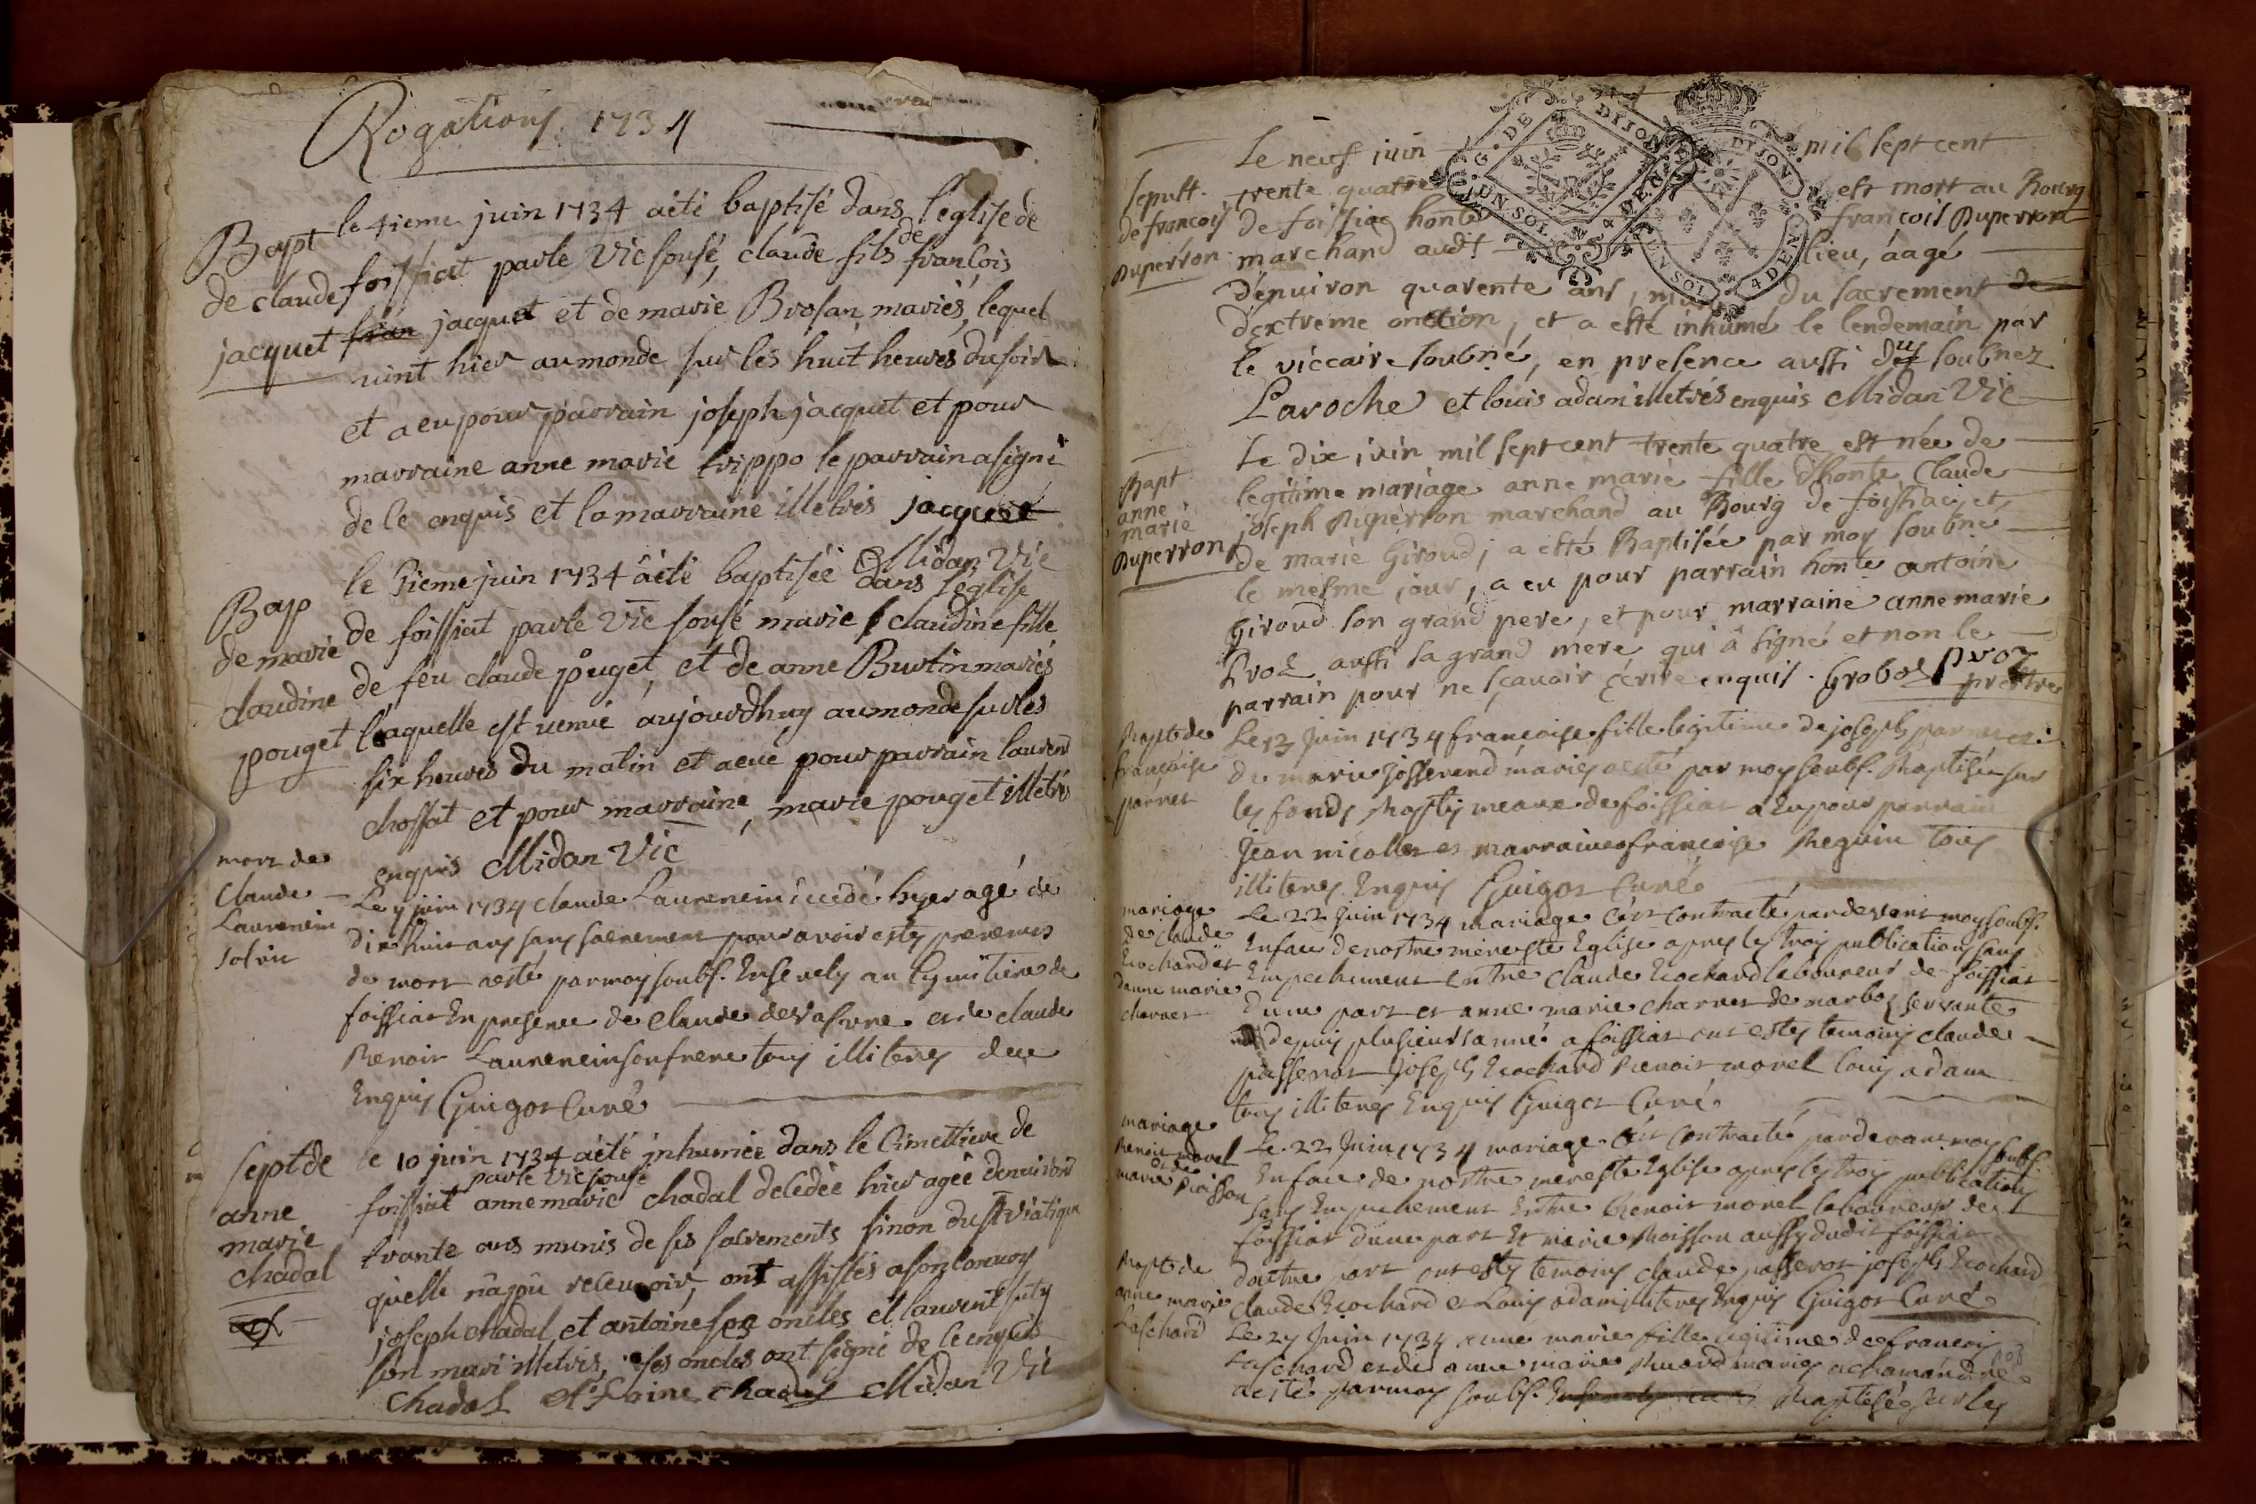 Rogations 1734
Bapt
de claude
jacquet
le 4ieme juin 1734 a été baptisé dans l'eglise de
foissiat par le Vic sousé, claude fils de francois
fran jacquet et de marie Brosan mariés, lequel
uint hier au monde sur les huit heures du soir
et a eu pour parrain joseph jacquet et pour
marraine anne marie trippo le parrain a signé
de le enquis et la marraine illetrés jacquet
Midan Vic
Bap
de marie
claudine
pouget
le 5ieme juin 1734 a été baptisée dans l'eglise
de foissiat par le Vic sousé marie claudine fille
de feu claude pouget, et de anne Burtin mariés
laquelle est uenué aujourdhuy au monde sur les
six heures du matin et a eue pour parrain laurend
chossat et pour marraine, marie pouget illetrés
enquis Midan Vic
mort de
Claude
Laurencin
Le 7 juin 1734 claude Laurencin décédé hyer agé de
dix huit ans sans sacrement pour avoir esty prevenus
de mort a esté par moy soubs. Ensevely au cymitiere de
foissiat En presence de Claude et de claude
Benoit Laurencin son frere tous illiterés de ce
Enquis Guigot Curé
Sept de
anne
marie
chadal
le 10 juin 1734 a été jnhumée dans le Cimettiere de
par le Vic sousé
foissiat anne marie chadal decedée hier agée denuiron
trante ans munis de ses sacrements sinon du St Viatique
quelle n'a pû receuoir, ont assistés a son conuoy
joseph chadal et antoine ses oncles et laurent
son mari illetrés, ses oncles ont signé de le enquis
Chadal chadal Midan Vic
sepult.
de francois
Duperron
Le neuf juin mil sept cent
trente quatre est mort au Bourg
de foissiac honte françois Duperron
marchand audt lieu, áagé
denuiron quarente ans, muni du sacrement de
dextreme onction, et a esté inhumé le lendemain par
le viccaire soubné, en presence aussi des soubnez
Laroche et louis adam illetrés enquis Midan Vic
Bapt
anne
marie
Duperron
Le dix juin mil sept cent trente quatre est née de
legitime mariage anne marie fille dhonte Claude
joseph Duperron marchand au Bourg de foissiac, et
de marie Giroud; a esté Baptisée par moy soubné
le mesme jour, a eu pour parrain honte antoine
Giroud son grand pere, et pour marraine anne marie
Proz aussi sa grand mere qui a signé et non le
parrain pour ne sçauoir écrire enquis. Groboz proz
prestre
Bapt de
françoise
parnet
Le 13 Juin 1734 francoise fille legitime de joseph parnet et
de marie Josserand mariés a esté par moy soubs. Baptisée sur
les fonds Baptismeaux de foissiat a Eu pour parrain
Jean nicollet et marraine francoise Reguin tous
illiterés Enquis Guigot Curé
mariage
de Claude
Ecochard et
danne marie
charnet
Le 22 Juin 1734 mariage c'est contracté pardevant moy soubs.
En face de nostre mere ste Eglise apres les trois publications sans
Empechement Entre Claude Ecochard laboureur de foissiat
dune part et anne marie charnet de marboz servante
depuis plusieurs anné a foissiat ont estés temoins claude
passerat Joseph Ecochard Benoit morel louis adam
tous illiterés Enquis Guigot Curé
mariage
Benoit morel
et de
marie Boisson
Le 22 Juin 1734 mariage c'est contracté pardevant moy soubs.
En face de nostre mere ste Eglise apres les trois publications
sans Empechement Entre Benoit morel laboureur de
foissiat dune part Et marie Boisson aussy dudit foissiat
dautre part ont estés temoins claude passerat joseph Ecochard
claude Ecochard et Louis adam illiterés Enquis Guigot Curé
Bapt de
anne marie
Laschard
Le 27 Juin 1734 anne marie fille legitime de francois
Laschard et de anne marie mariés a chamandre
a esté par moy soubs. Baptisée sur les
G. DE DIJON
UN SOL 4 DEN.
DIJON
UN SOL 4 DEN.